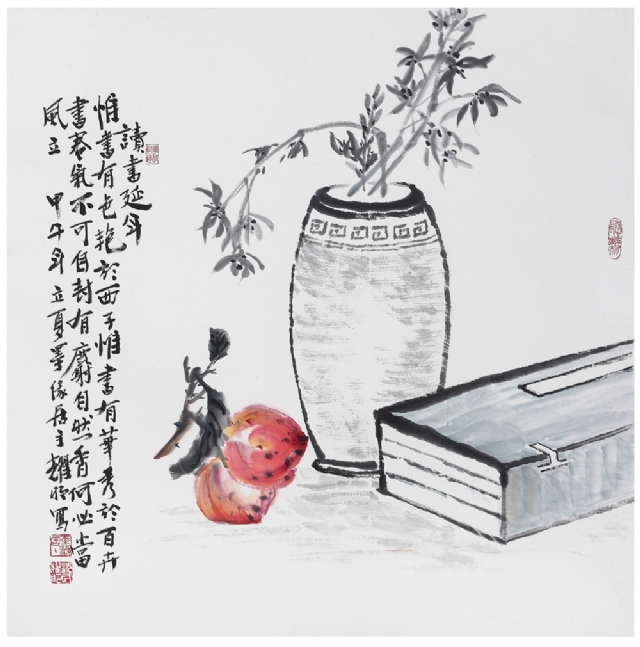 讀書延年
惟書有色艳於西子惟書有華秀於百卉
書卷氣不可自封有麝自然香何必當
風立 甲午年立夏墨缘居主耀明寫